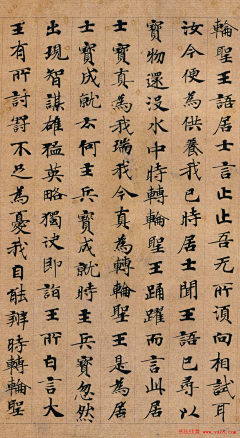 輪聖王語居士言止止吾无所須向相試耳
汝今便為供養我已時居士聞王語已尋以
寶物還沒水中時轉輪聖王踊躍而言此居
士寶真為我瑞我今真為轉輪聖王是為居
士寶成就云何主兵寶成就時主兵寶忽然
出現智謀雄猛英略獨決即詣王所白言大
王有所討罰不足為憂我自能辦時轉輪聖